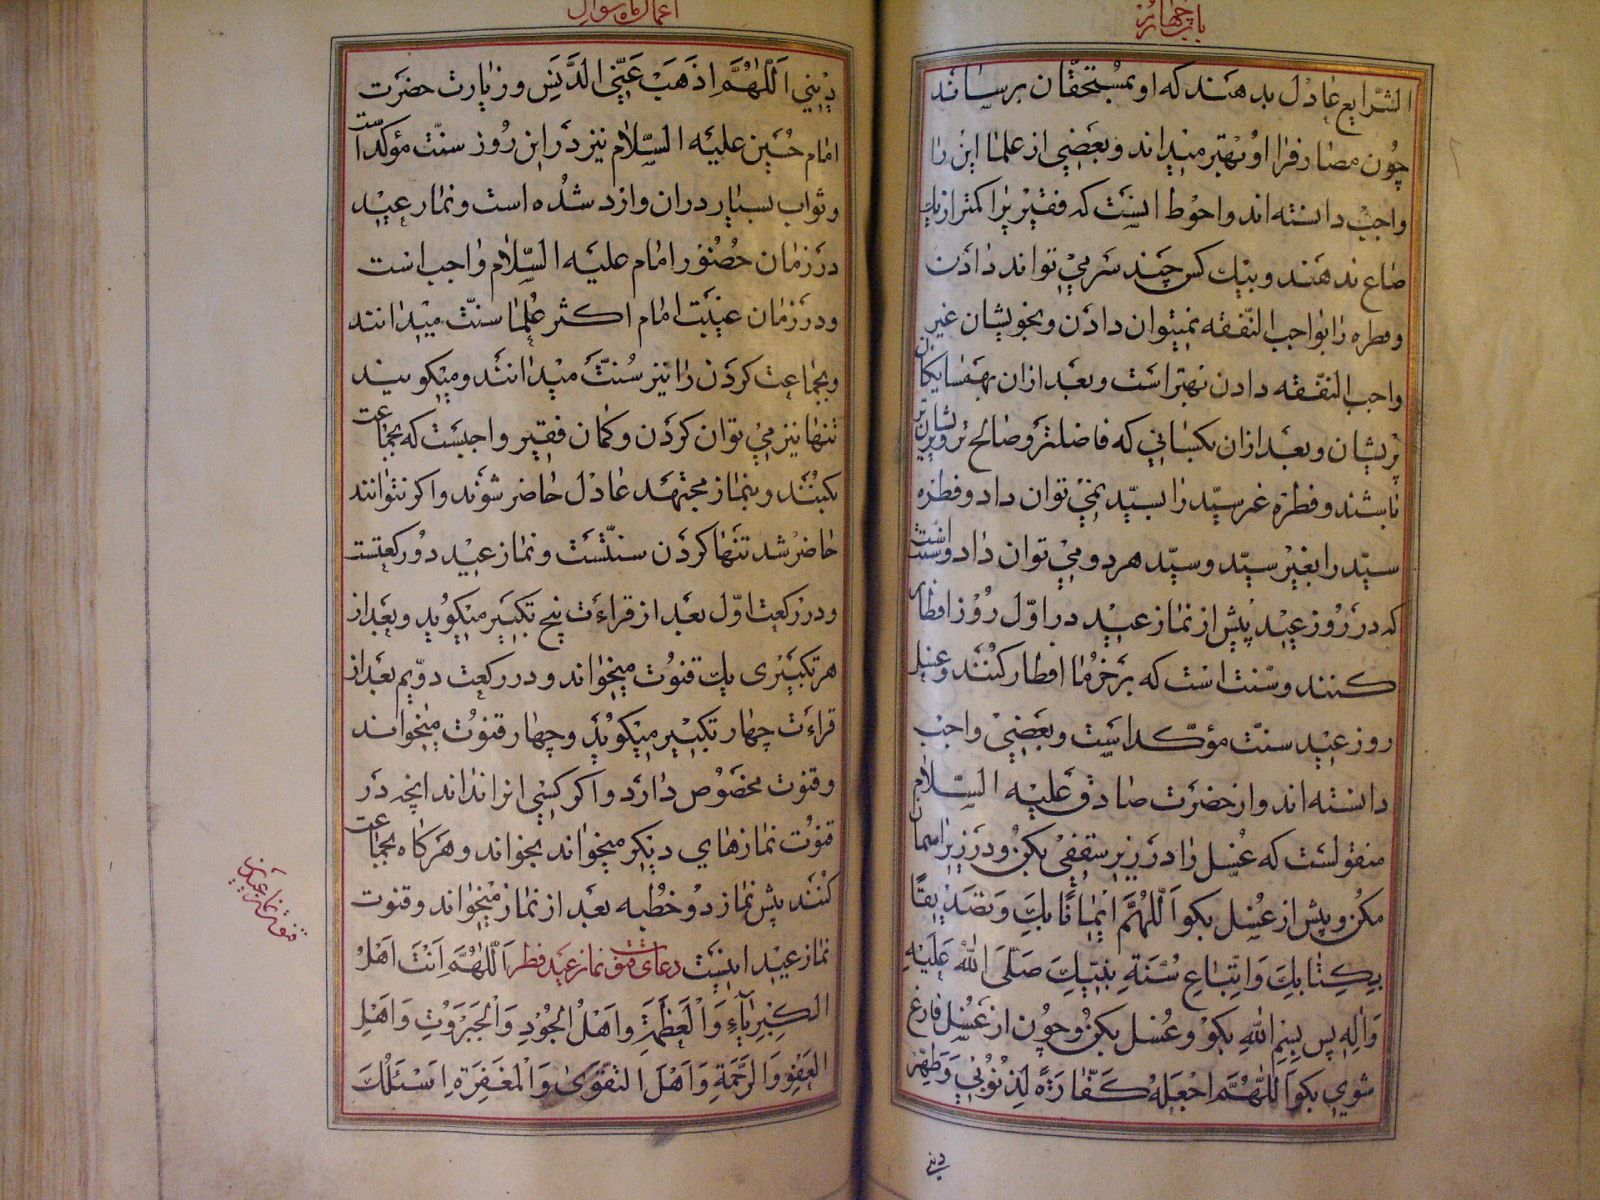 باب چهارم
الشرایع عادل بدهند که او بمستحقان برساند
چون مصارف را او بهتر میداند و بعضی از علما این را
واجب دانسته اند واحوط اینست که فقیر را کمتر از یك
صاع ندهند و بیك کس چند سر می تواند دادن
و فطره را بواجب النفقه نمیتوان دادن و بخویشان غیر
واجب النفقه دادن بهتر است و بعد از ان بهمسایکان
پریشان و بعد از ان بکسانی که فاضلتر و صالح تر و پریشان تر
باشند و فطرۀ غیر سیّد را بسیّد نمی توان داد و فطرۀ
سیّد را بغیر سیّد و سیّد هر دو می توان داد و سنت است
که در روز عید پیش از نماز عید در اوّل روز افطار
کنند و سنت است که بر خرما افطار کنند و غسل
روز عید سنت مؤکّد است و بعضی واجب
دانسته اند و از حضرت صادق علیه السّلام
منقولست که غسل را در زیر سقفی بکن و در زیر اسمان
مکن و پیش از غسل بکو اَللّٰهُمَّ اِیمٰانًا بِكَ وَ تَصْدِیقًا
بِکِتٰابِكَ وَ اتِّبٰاعِ سُنَّةِ نَبِیِّكَ صَلَّی اللّٰهُ عَلَیْهِ
وَاٰلِهِ پس بِسْمِ اللّٰهِ بکو و غسل بکن و چون از غسل فارغ
شوی بکو اَللّٰهُمَّ اجْعَلْهُ کَفّٰارَةً لِذُنُوبِی وَ طَهِّرْ
دینی
اعمال ماه شوال
دِینِی اَللّٰهُمَّ اذْهَبْ عَنِّی الدَّنَسَ و زیارت حضرت
امام حسین علیه السّلام نیز در این روز سنّت مؤکّد است
و ثواب بسیار در ان وارد شده است و نماز عید
در زمان حضور امام علیه السّلام واجب است
و در زمان غیبت امام اکثر علما سنّت میدانند
و بجماعت کردن را نیز سنّت میدانند و میکویند
تنها نیز می توان کردن و کمان فقیر واجبست که بجماعت
بکنند و بنماز مجتهد عادل حاضر شوند و اکر نتوانند
حاضر شد تنها کردن سنّتست و نماز عید دو رکعتست
و در رکعت اوّل بعد از قراءت پنج تکبیر میکوید و بعد از
هر تکبیری یك قنوت میخواند و در رکعت دوّیم بعد از
قراءت چهار تکبیر میکوید و چهار قنوت میخواند
و قنوت مخصوص دارد و اکر کسی انرا نداند انچه در
قنوت نمازهای دیکر میخواند بخواند و هرکاه بجماعت
کنند پیش نماز دو خطبه بعد از نماز میخواند و قنوت
نماز عید اینست دعای قنوت نماز عید فطر اَللّٰهُمَّ اَنْتَ اَهْلُ
الْکِبْرِیٰٓاءِ وَالْعَظَمَةِ وَاَهْلُ الْجُوْدِ وَالْجَبَرُوْتِ وَاَهْلِ
الْعَفْوِ وَالرَّحْمَةِ وَاَهْلَ التَّقْوٰی وَالْمَغْفِرَةِ اَسْئَلُكَ
قنوت نماز عیدین